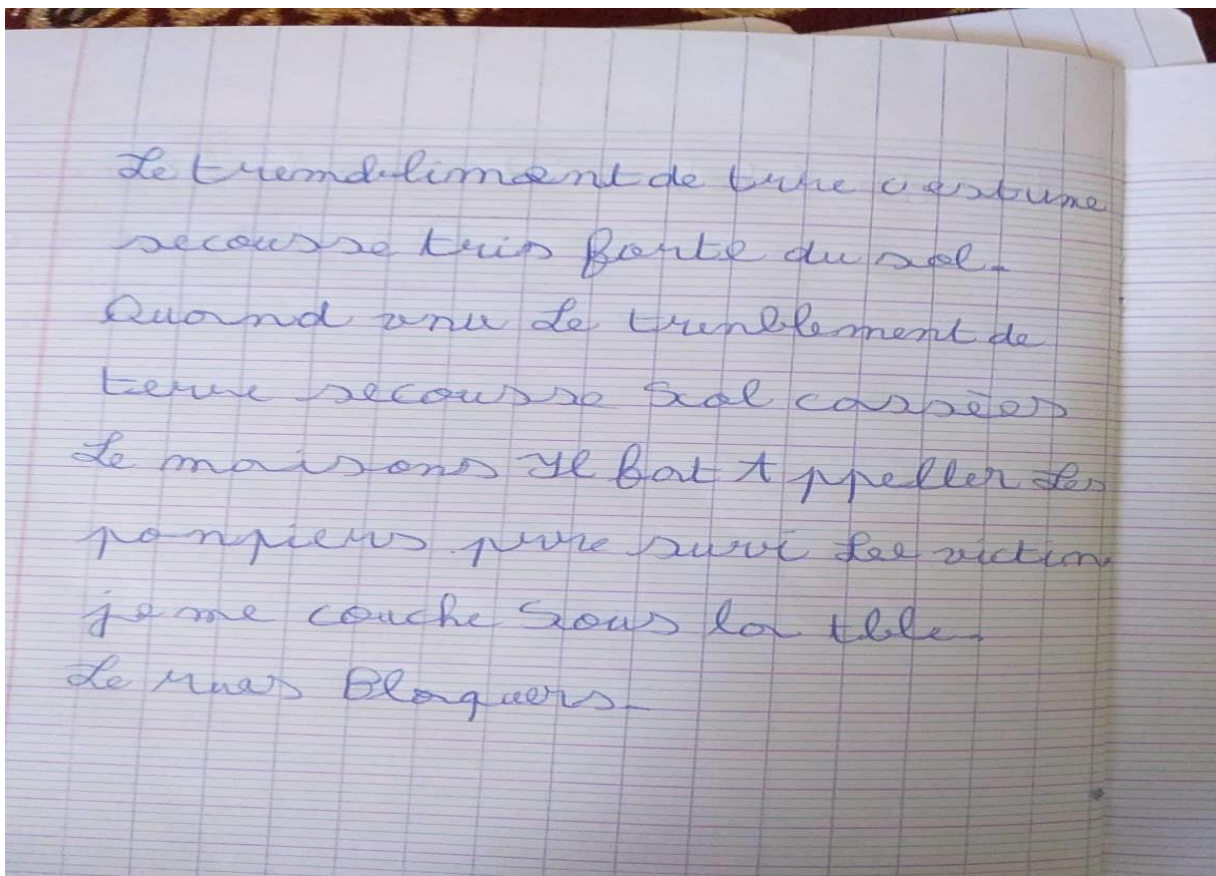 Le tremdeliment de terre c estune
secousse tris forte du sol.
Quand vnu Le trenblement de
terre secousse Sol cassèes
Le maisons Il fat Appeller Les
ponpiers pure survi Les victim
je me couche Sous la tble.
Le ruas Bloquers.